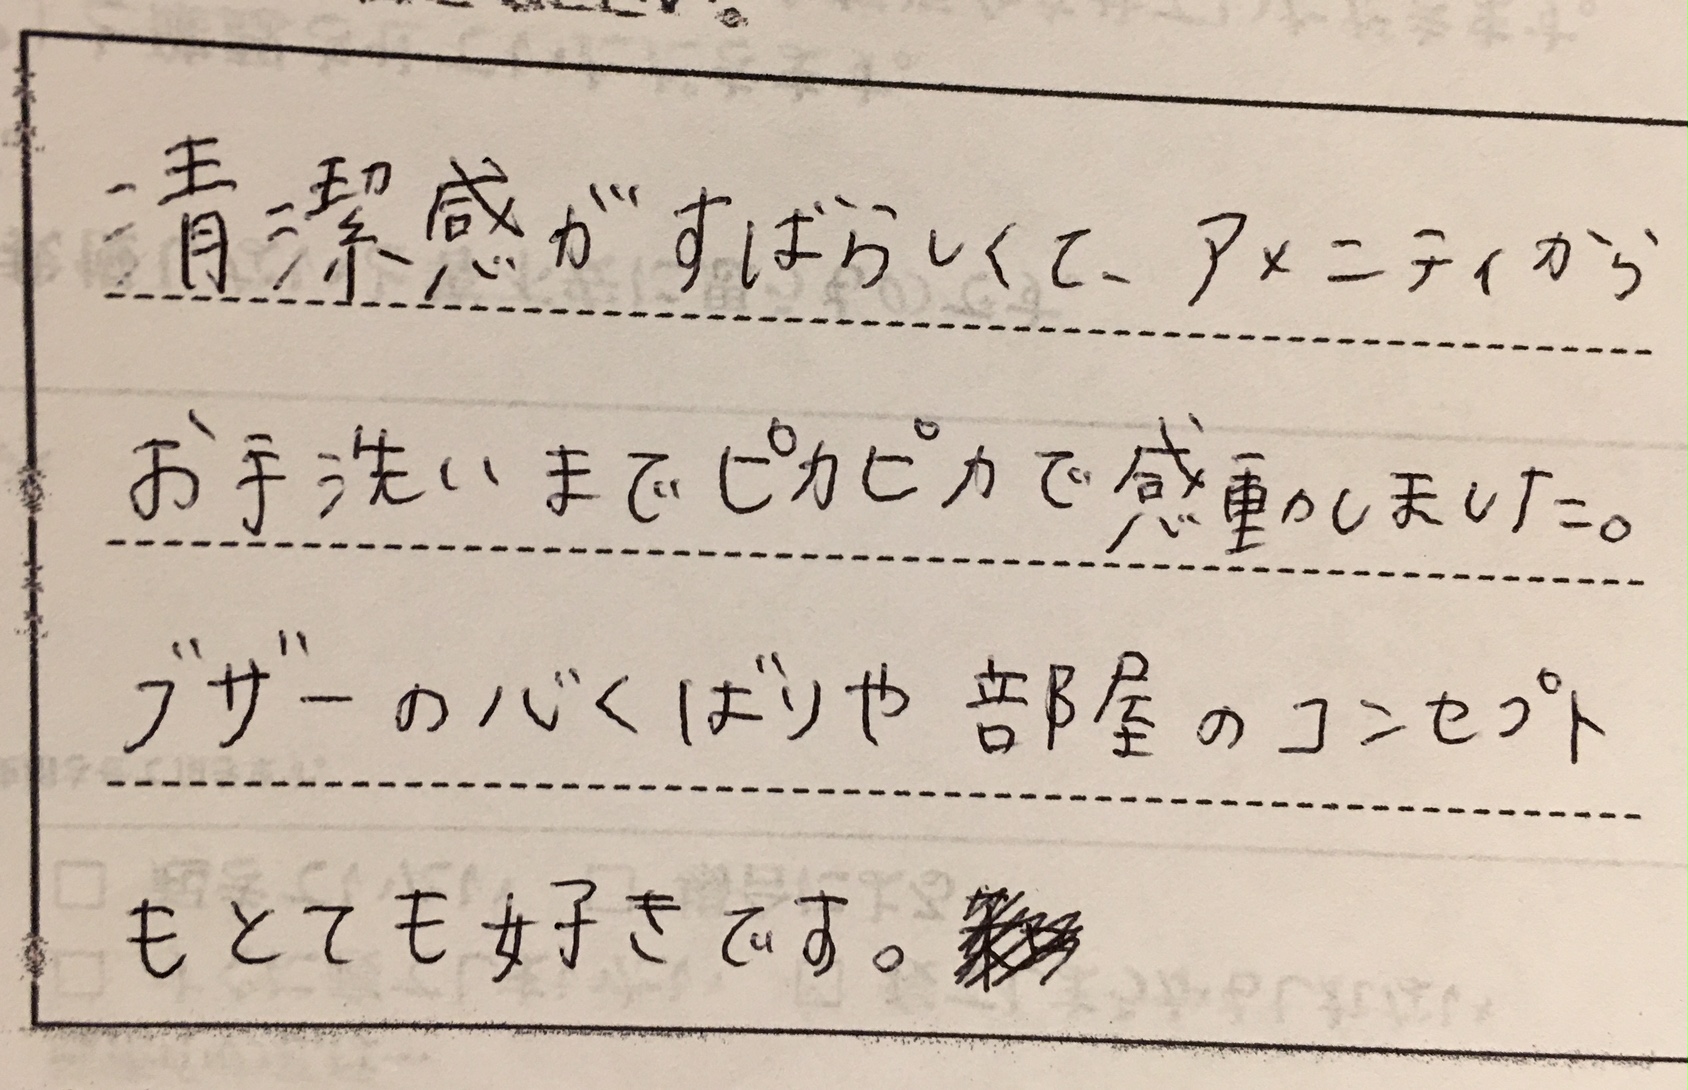 清潔感がすばらしくて、アメニティから
お手洗いまでピカピカで感動しました。
ブザーの心くばりや部屋のコンセプト
もとても好きです。